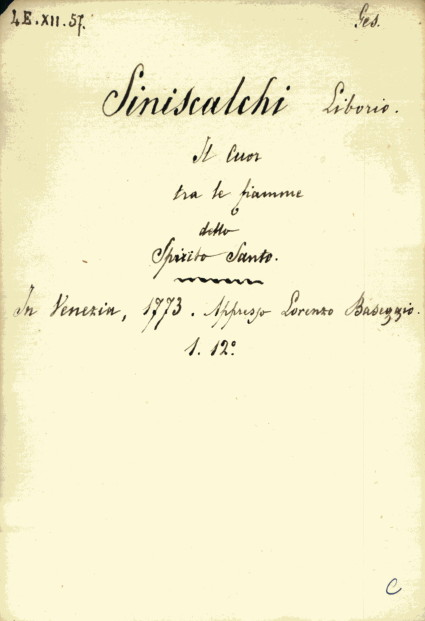 4E.XII.57.
Ges.
Siniscalchi Liborio.
Il Cuor
tra le fiamme
dello
Spirito Santo.
In Venezia, 1773. Appresso Lorenzo Baseggio.
1. 12°.
C